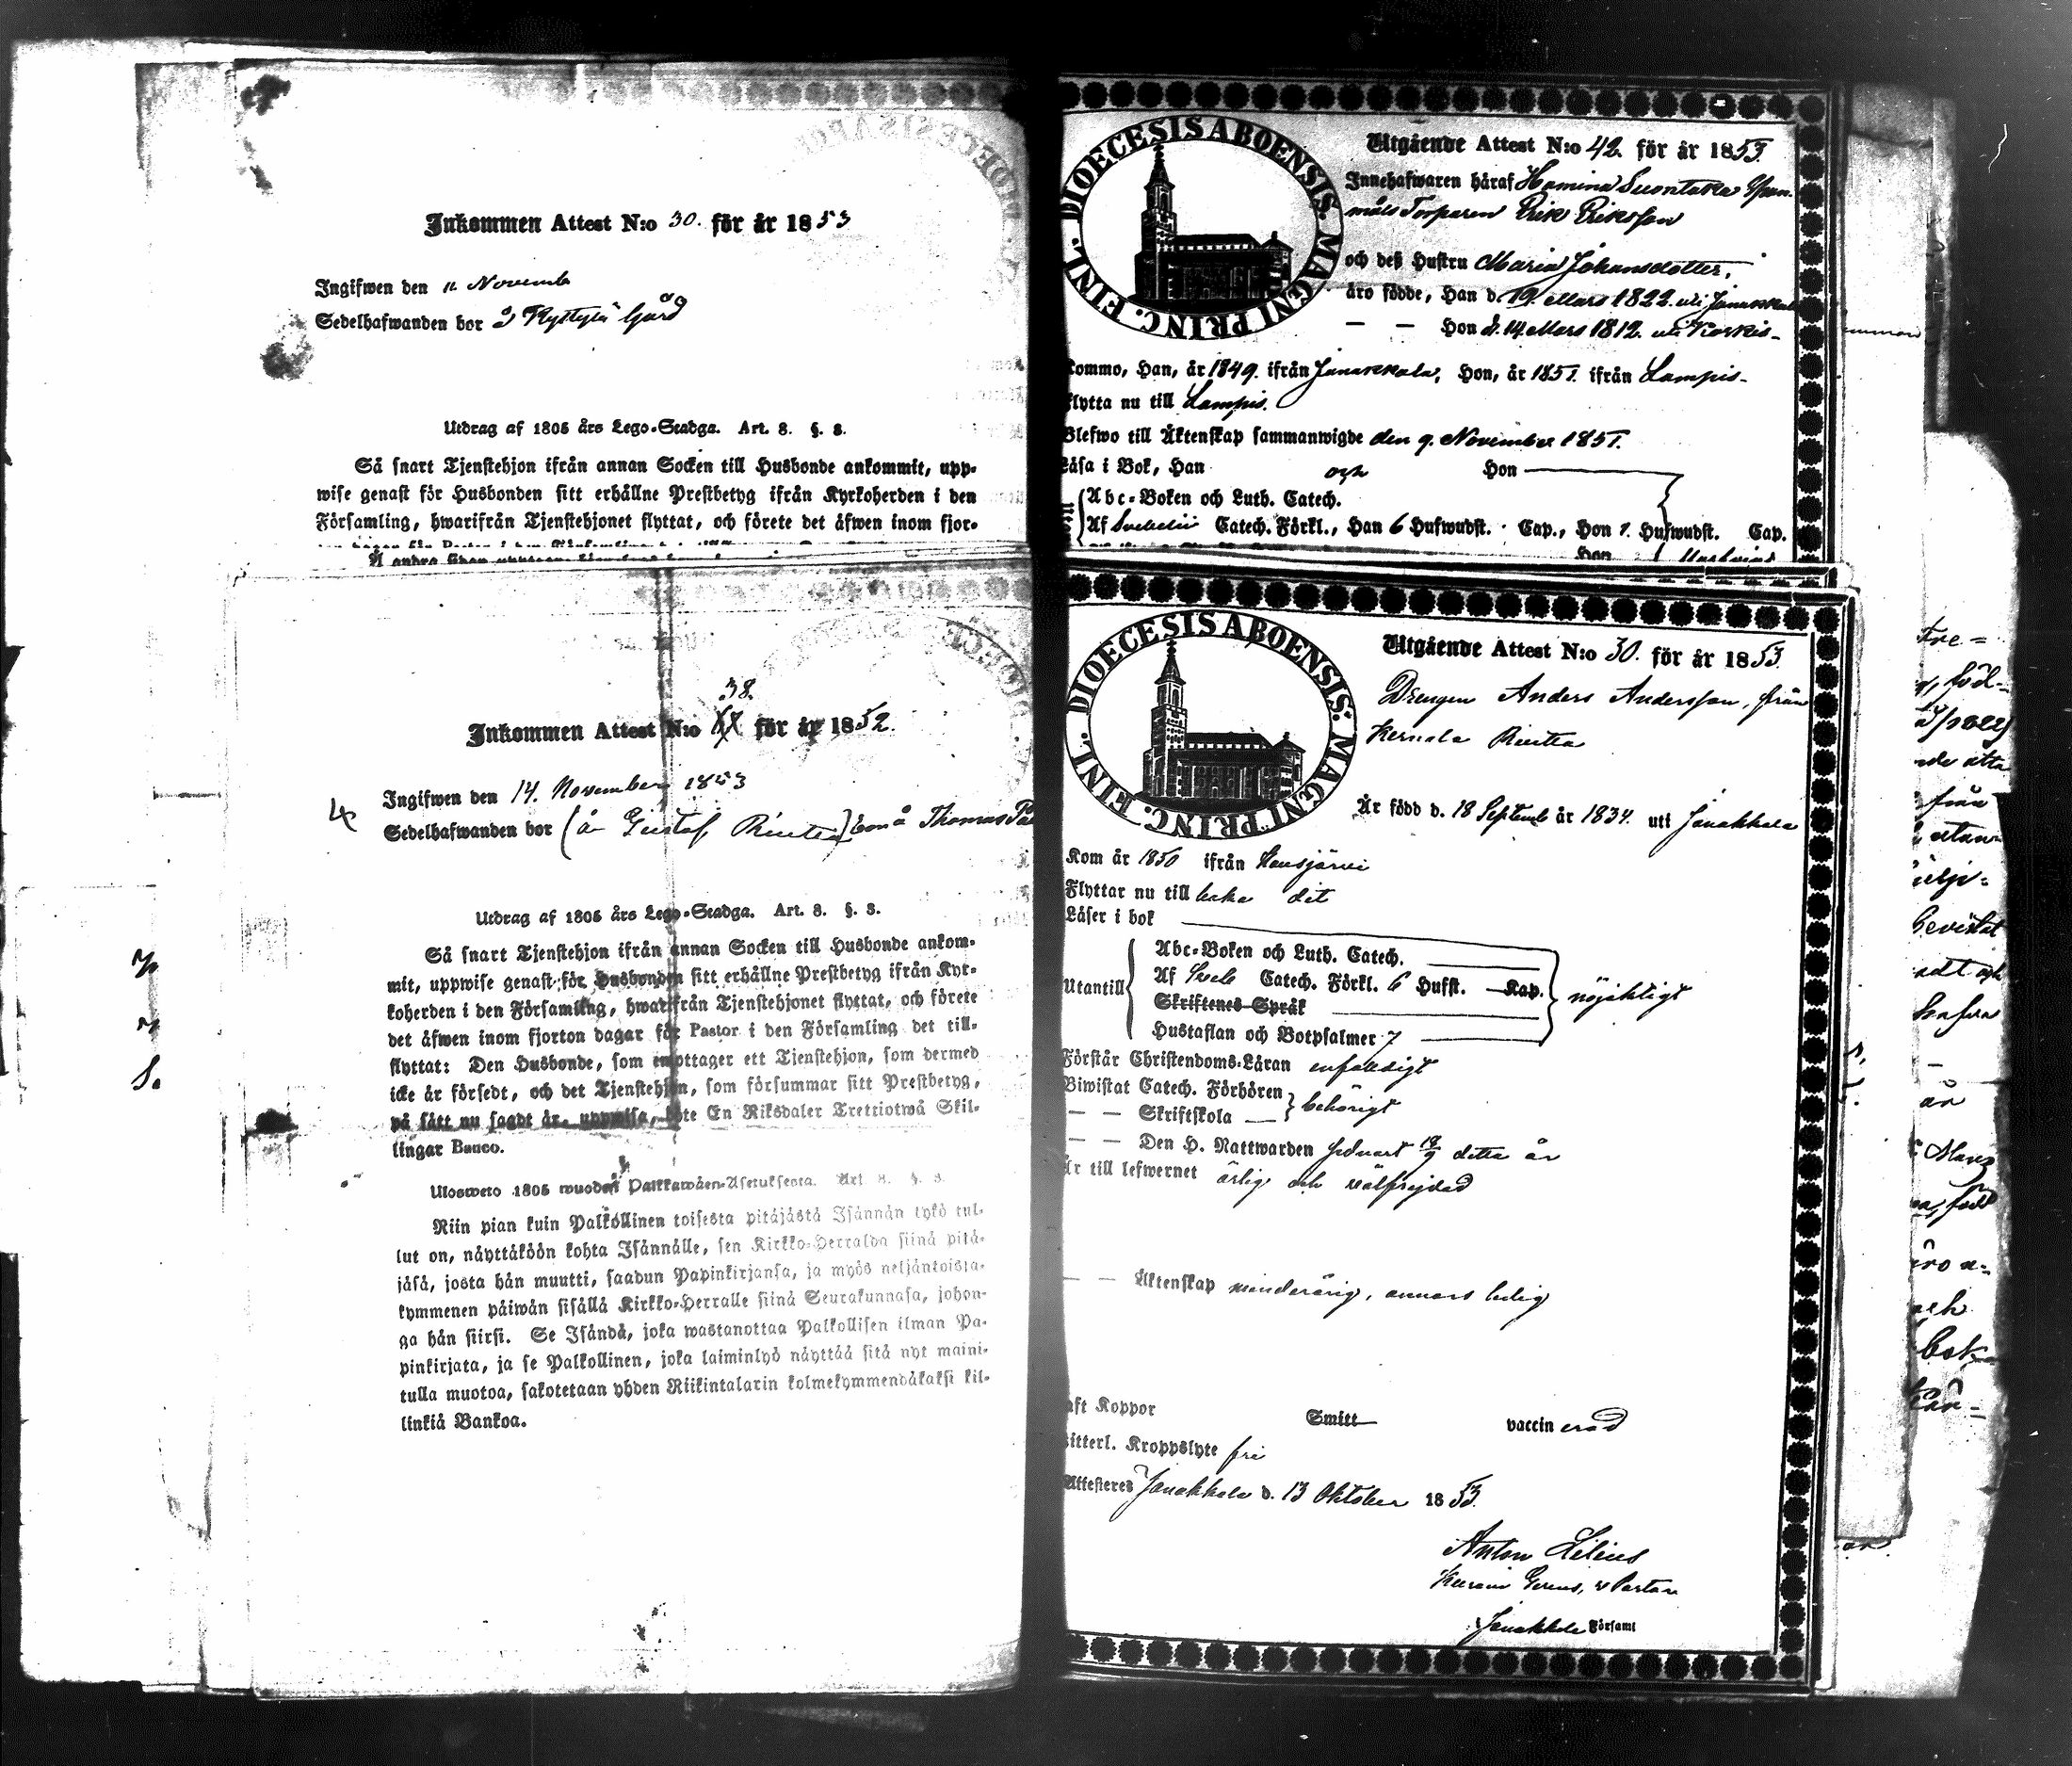 Inkommen Attest N:o 30. för år 1853
Ingifwen den 11 Novemb
Sedelhafwanden bor å Ryttylä Gård
Utdrag af 1805 års Lego-Stadga. Art. 8. §. 8.
Så snart Tjenstehjon ifrån annan Socken till Husbonde ankommit, upp-
wise genast för Husbonden sitt erhållne Prestbetyg ifrån Kyrkoherden i den
Församling, hwarifrån Tjenstehjonet flyttat, och förete det äfwen inom fjor-
38.
Inkommen Attest N:o för år 1852.
Ingifwen den 14. November 1853
Sedelhafwanden bor (å Gustaf, Rintta) bor å Thomas
Utdrag af 1805 års Lego-Stadga. Art. 8. §. 8.
Så snart Tjenstehjon ifrån annan Socken till Husbonde ankom-
mit, uppwise genast för Husbonden sitt erhållne Prestbetyg ifrån Kyr-
koherden i den Församling, hwarifrån Tjenstehjonet flyttat, och förete
det äfwen inom fjorton dagar för Pastor i den Församling det till-
flyttat: Den Husbonde, som emottager ett Tjenstehjon, som dermed
icke är försedt, och det Tjenstehjon, som försummar sitt Prestbetyg,
på sätt nu sagdt är, uppwisa, böte En Riksdaler Trettiotwå Skil-
lingar Banco.
Ulosweto 1805 wuoden Palkkawäen-Asetuksesta. Art. 8. §. 8.
Niin pian kuin Palkollinen toisesta pitäjästä Isännän tykö tul-
lut on, näyttäköön kohta Isännälle, sen Kirkko-Herralda siinä pitä-
jäsä, josta hän muutti, saadun Papinkirjansa, ja myös neljäntoista-
kymmenen päiwän sisällä Kirkko-Herralle siinä Seurakunnasa, johon-
ga hän siirsi. Se Isändä, joka wastanottaa Palkollisen ilman Pa-
pinkirjata, ja se Palkollinen, joka laiminlyö näyttää sitä nyt maini-
tulla muotoa, sakotetaan yhden Riikintalarin kolmekymmendäkaksi kil-
linkiä Bankoa.
DIOECESIS ABOENSIS. MAGNI PRINC. FINL.
Utgående Attest N:o 42. för år 1853.
Innehafwaren häraf Hamina Suontaka
Torparen Erik Eriksson
och deß Hustru Maria Johansdotter,
äro födde, Han d. 19. Mars 1822. uti Janakkala
— — Hon d. 14 Mars 1812. uti Korkis-
kommo, Han, år 1849. ifrån Janakkala, Hon, år 1851. ifrån Lampis-
flytta nu till Lampis.
Blefwo till Äktenskap sammanwigde den 9. November 1851.
Läsa i Bok, Han och Hon
Abc-Boken och Luth. Catech.
Af Svebelii Catech. Förkl., Han 6 Hufwudst. Cap., Hon 1. Hufwudst. Cap.
DIOECESIS ABOENSIS. MAGNI PRINC. FINL.
Utgående Attest N:o 30. för år 1853.
Drengen Anders Andersson, från
Kernala Rintta
Är född d. 18 Septemb år 1834. uti Janakkala
Kom år 1850 ifrån Hausjärvi
Flyttar nu till baka dit
Läser i bok
Utantill Abc-Boken och Luth. Catech.
Af Sveb Catech. Förkl. 6 Hufst. Kap. nöjaktigt
Skriftenes Språk
Hustaflan och Botpsalmer 7
Förstår Christendoms-Läran enfaldigt
Biwistat Catech. Förhören behörigt
— — Skriftskola
— — Den H. Nattwarden sednast 18/9 detta år
Är till lefwernet ärlig och välfrejdad
— — Äktenskap minderårig, annars ledig
Haft Koppor Smitt vaccin erad
Witterl. Kroppslyte fri
Attesteres Janakkala d. 13 Oktober 1853.
Anton Lilius
Janakkala Församl